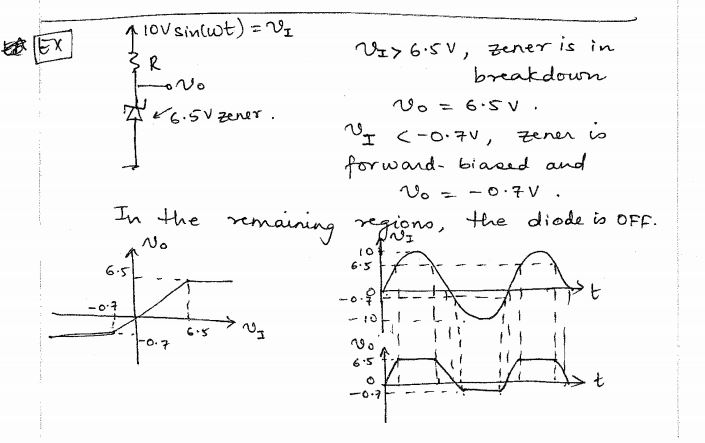 EX
10V sin(ωt) = υI
R
υo
6.5V zener.
υI > 6.5V, zener is in
breakdown
υo = 6.5V.
υI < -0.7V, zener is
forward-biased and
υo = -0.7V.
In the remaining regions, the diode is OFF.
υo
6.5
-0.7
6.5
υI
-0.7
υI
10
6.5
0
-0.7
-10
t
υo
6.5
0
-0.7
t